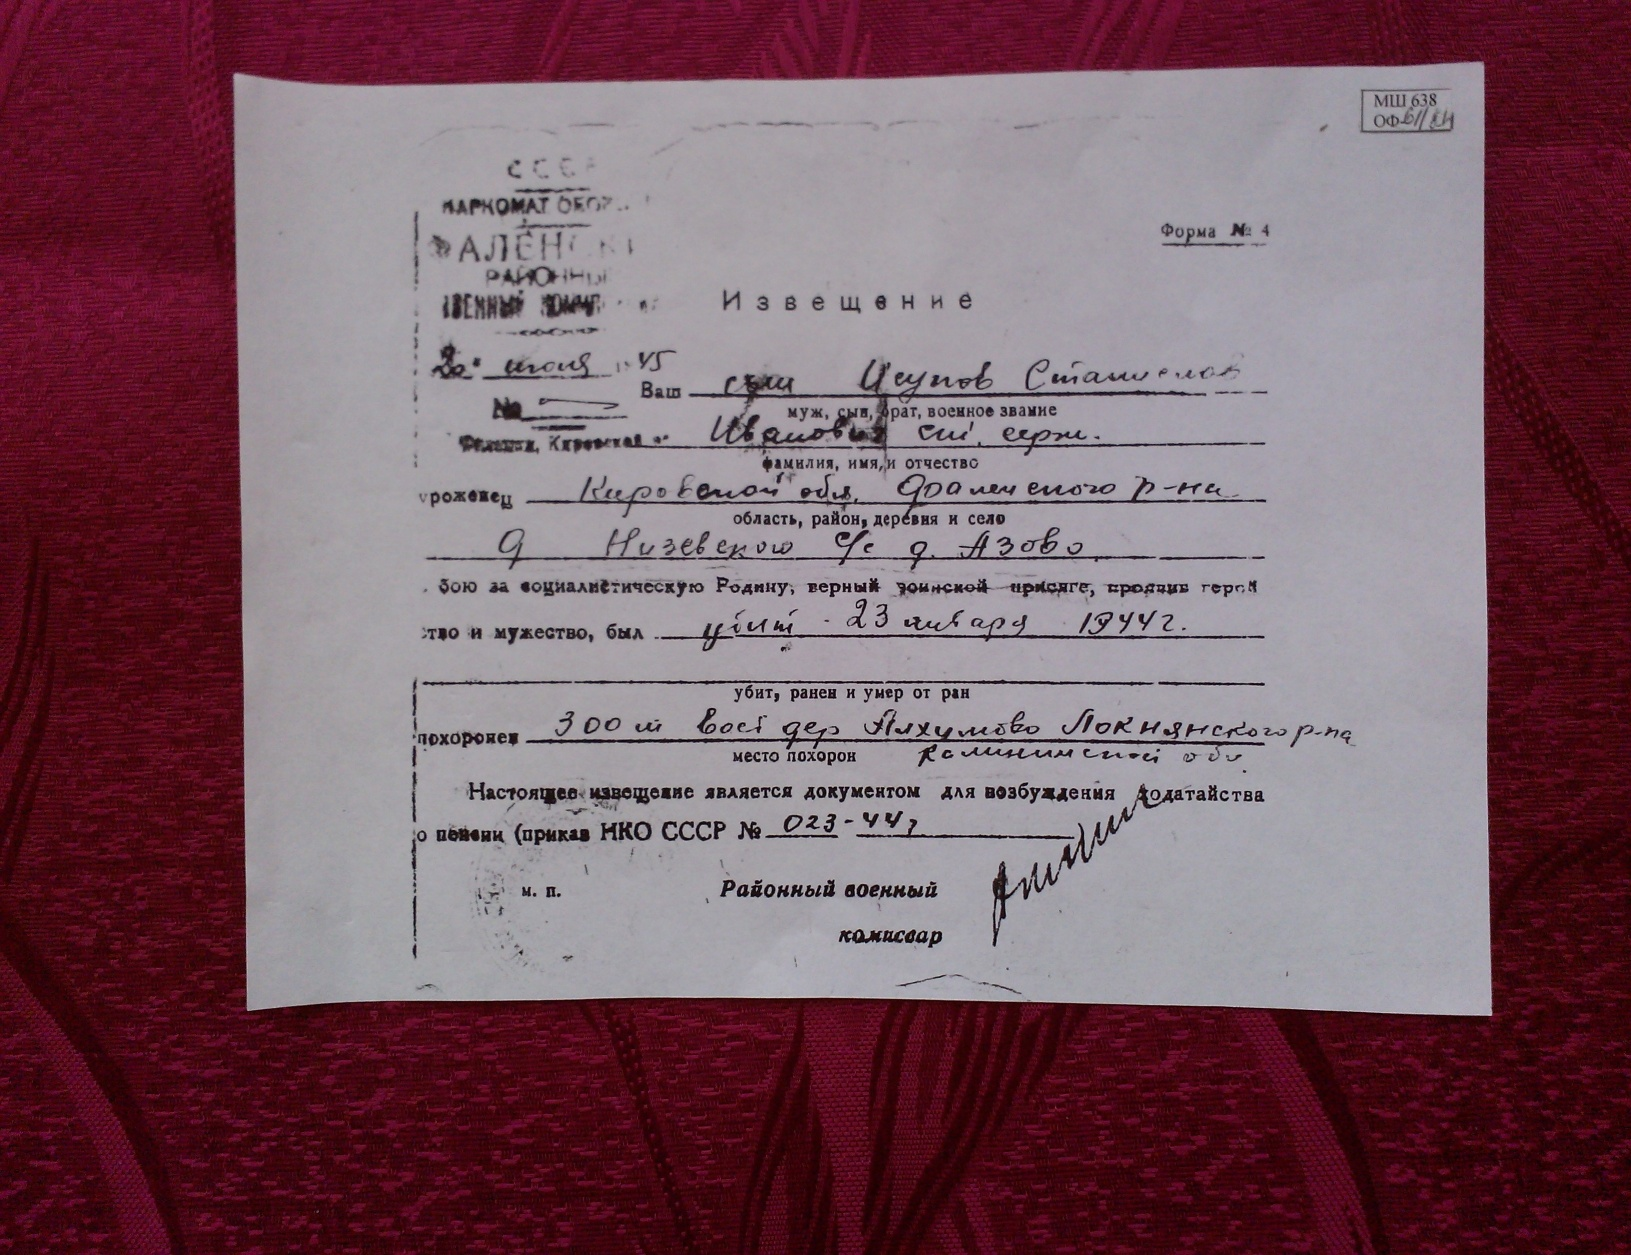 МШ 638
ОФ
СССР
НАРКОМАТ ОБОР
ФАЛЕНСКИ
РАЙОННЫ
ВОЕННЫЙ
Форма № 4
Извещение
20" июля 45
№
Ваш сын Исупов Станислав
муж, сын, брат, военное звание
Фаленки, Кировская
Иванович ст. серж.
фамилия, имя, и отчество
уроженец Кировской обл. Фаленского р-на
область, район, деревня и село
Низевского с/с д. Азово
бою за социалистическую Родину, верный воинской присяге, проявив герой
ство и мужество, был убит 23 января 1944 г.
убит, ранен и умер от ран
похоронен 300 м вост дер Локнянского р-на
место похорон Калининской обл
Настоящее извещение является документом для возбуждения ходатайства
о пенсии (приказ НКО СССР № 023-44г
м. п.
Районный военный
комиссар